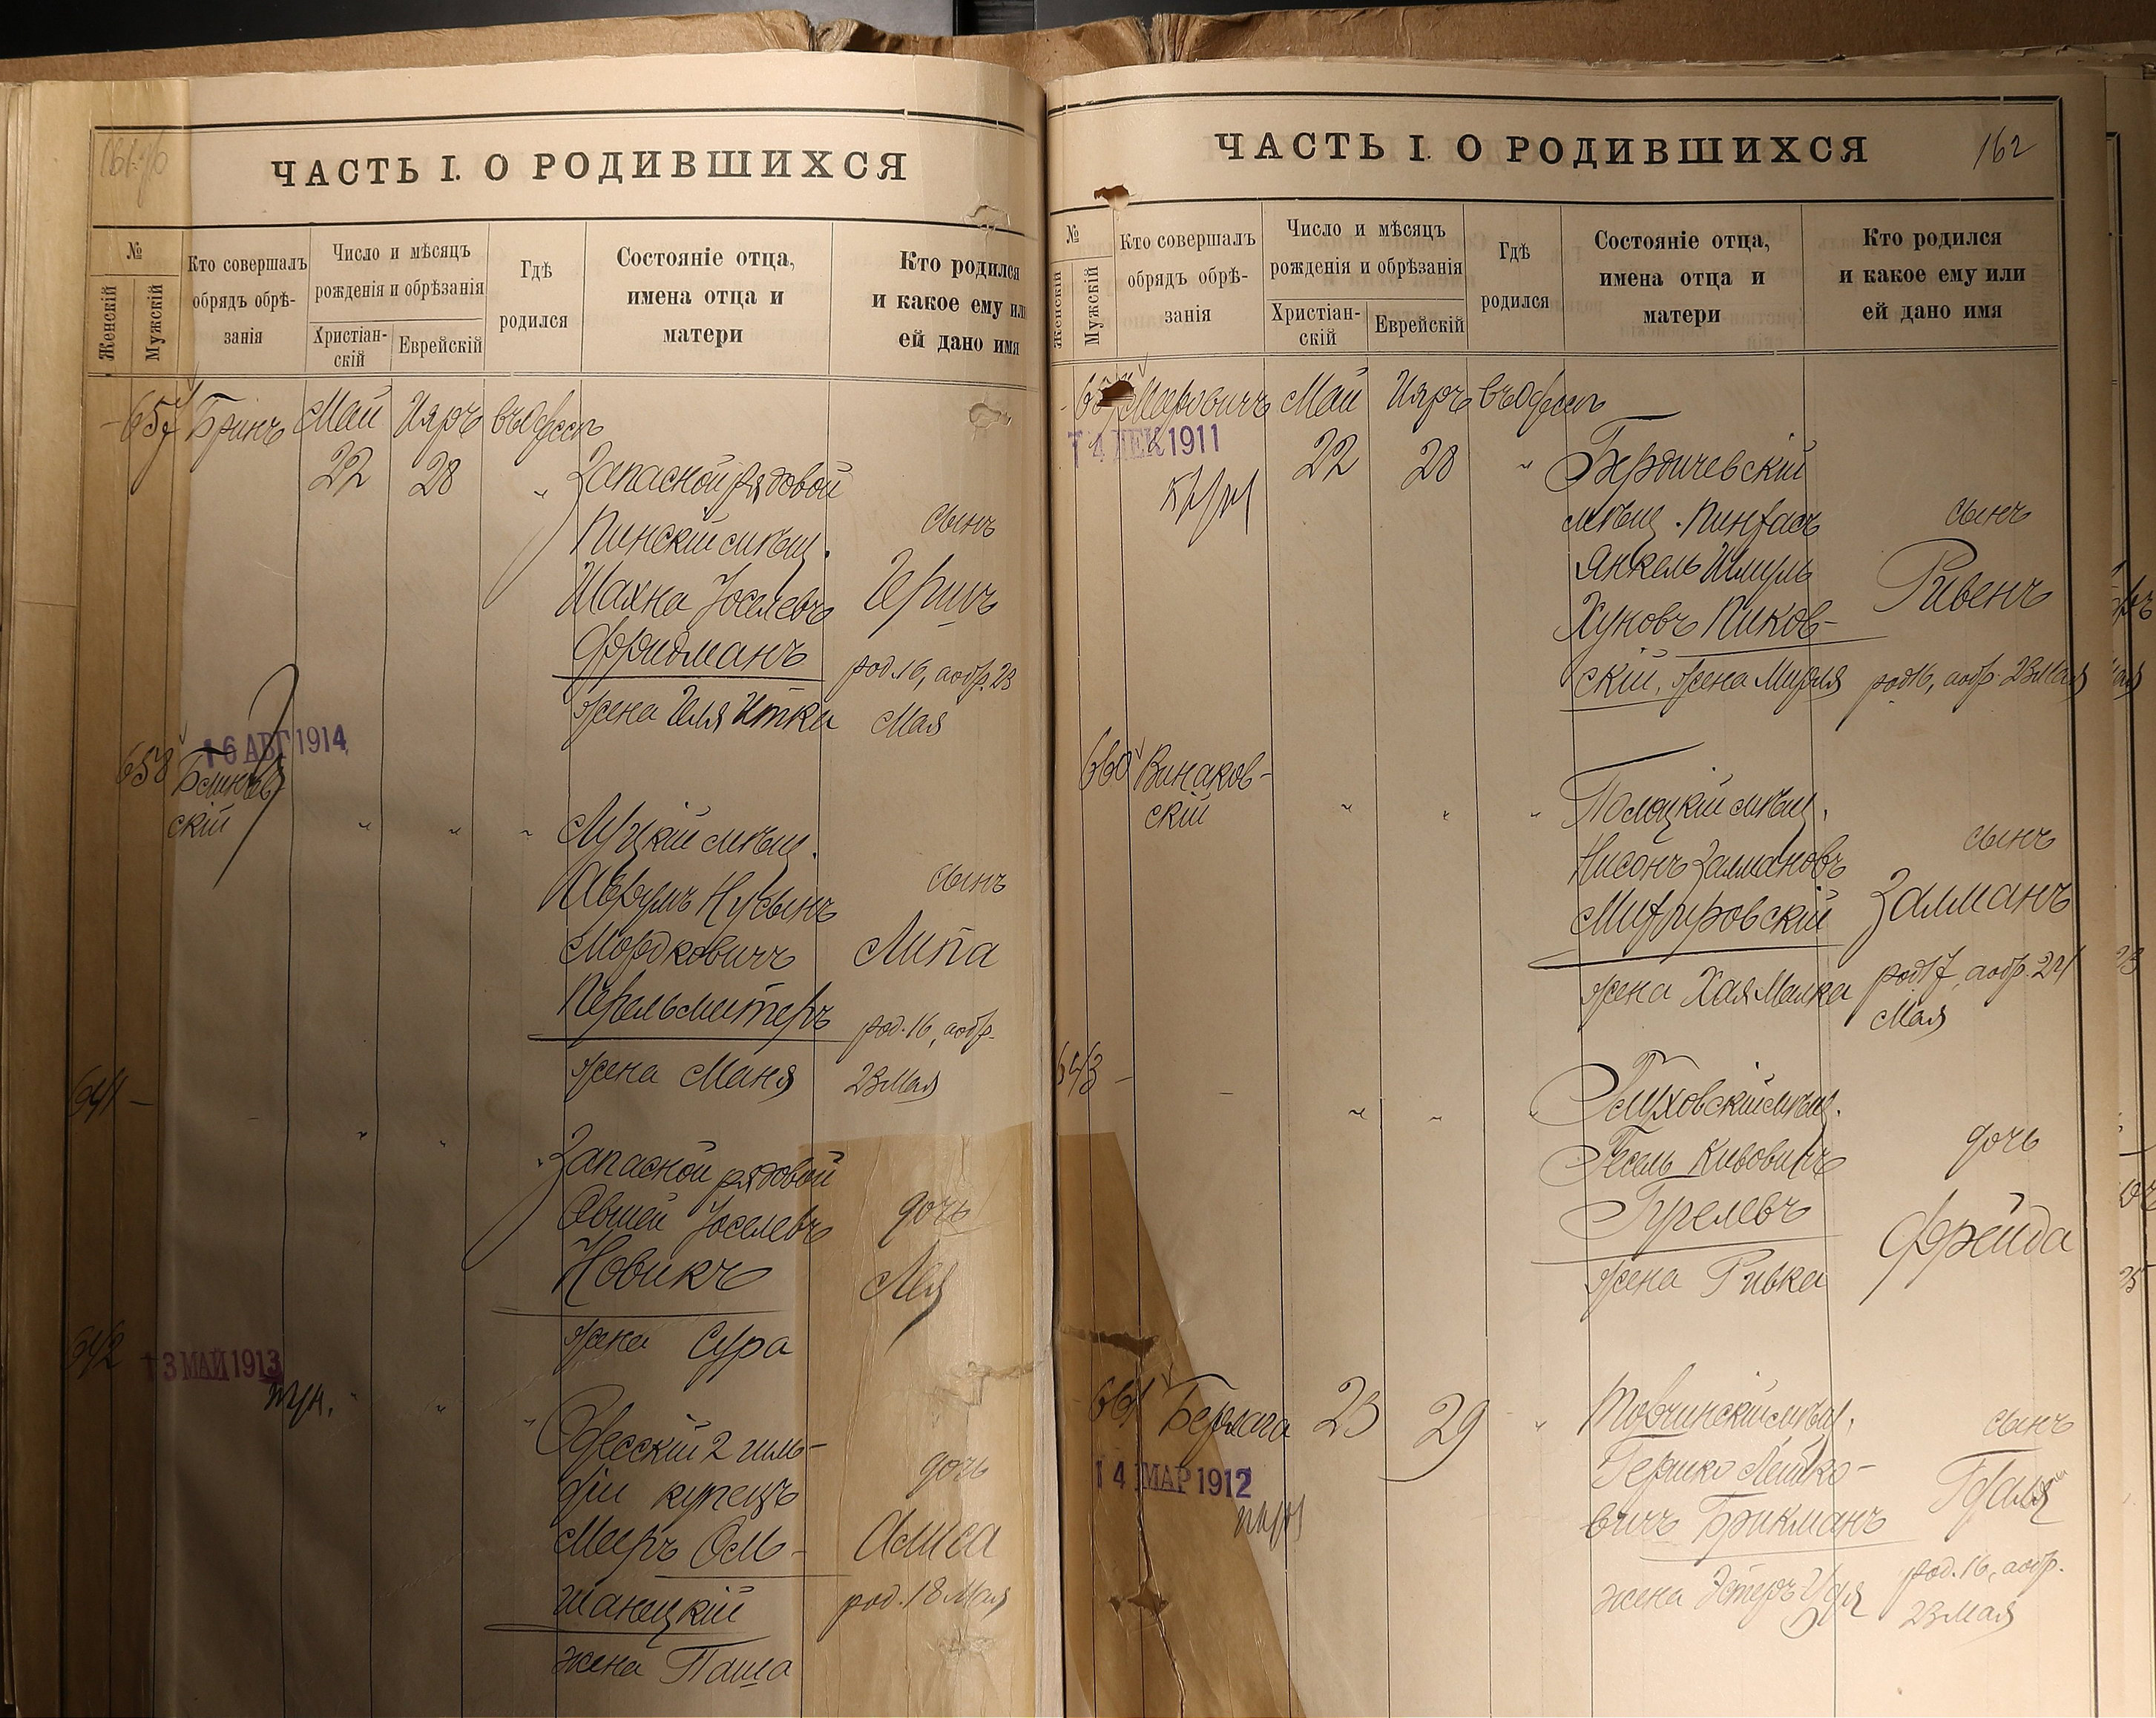 ЧАСТЬ I. О РОДИВШИХСЯ
№
Женскій
Мужскій
Кто совершалъ
обрядъ обрѣ-
занія
Число и мѣсяцъ
рожденія и обрѣзанія
Христіан-
скій
Еврейскій
Гдѣ
родился
Состояніе отца,
имена отца и
матери
Кто родился
и какое ему или
ей дано имя
657 Бринъ Май Ияръ въ Одессѣ
22 28 "
Запасной рядовой
Пинскій мѣщ.
Шахна Іоселевъ
Фридманъ
жена Чиля Итка
сынъ
Гершъ
род. 16, а обр. 23
Мая
16 АВГ 1914
658
скій
" " "
Луцкій мѣщ.
Аврумъ Нусынъ
Мордковичъ
Перельмитеръ
жена Маня
сынъ
Липа
род. 16, а обр.
23 Мая
641 —
" " "
Запасной рядовой
Овшей Іоселевъ
Новикъ
жена Сура
дочь
Лея
642
13 МАЙ 1913
" " "
Одесскій 2 гиль-
діи купецъ
Мееръ Оль-
шанецкій
жена Паша
дочь
Алиса
род. 18 Мая
ЧАСТЬ I. О РОДИВШИХСЯ
162
№
Женскій
Мужскій
Кто совершалъ
обрядъ обрѣ-
занія
Число и мѣсяцъ
рожденія и обрѣзанія
Христіан-
скій
Еврейскій
Гдѣ
родился
Состояніе отца,
имена отца и
матери
Кто родился
и какое ему или
ей дано имя
65 Маровичъ Май Ияръ въ Одессѣ
14 ДЕК 1911
22 28 "
Бердичевскій
мѣщ. Пинхасъ
Янкель Шмуль
Хуновъ Пиков-
скій, жена Мирля
сынъ
Рувенъ
род 16, а обр. 23 Мая
660 Винаков-
скій
" " "
Полоцкій мѣщ.
Нисонъ Залмановъ
жена Хая Малка
сынъ
Залманъ
род 17, а обр. 24
Мая
643 —
— " " "
Глуховскій мѣщ.
Гесель Кивовичъ
Гурелевъ
жена Ривка
дочь
Фрейда
661 Берлага 23 29 "
14 МАР 1912
мѣщ.
Гершко Лейбко-
вичъ Брикманъ
жена Эстеръ Удя
сынъ
Гдаля
род. 16, а обр.
23 Мая